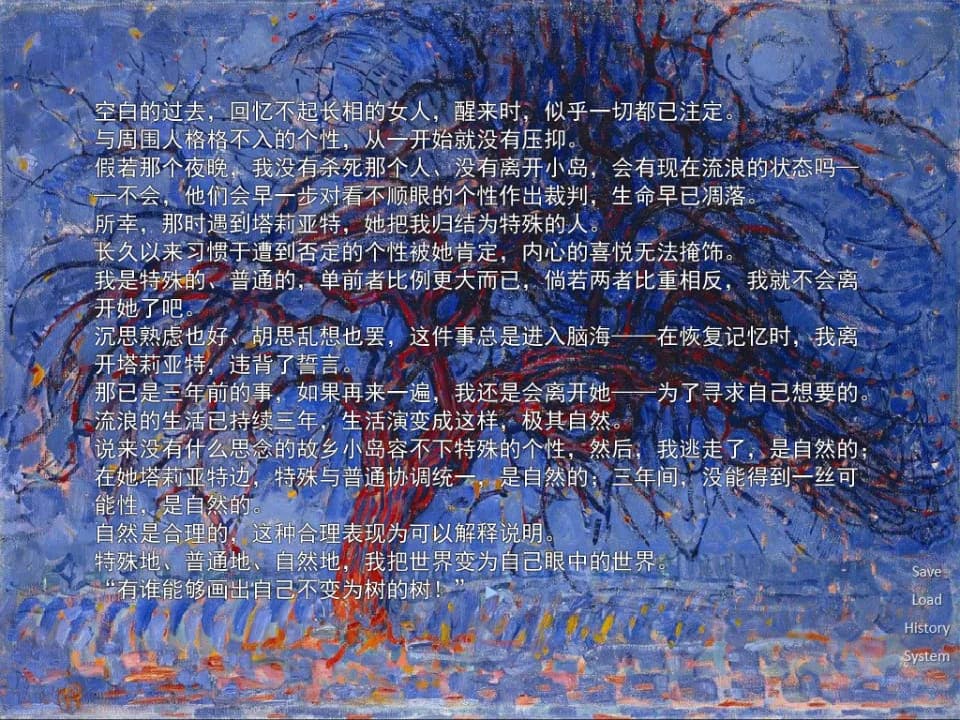 空白的过去，回忆不起长相的女人，醒来时，似乎一切都已注定。
与周围人格格不入的个性，从一开始就没有压抑。
假若那个夜晚，我没有杀死那个人、没有离开小岛，会有现在流浪的状态吗—
—不会，他们会早一步对看不顺眼的个性作出裁判，生命早已凋落。
所幸，那时遇到塔莉亚特，她把我归结为特殊的人。
长久以来习惯于遭到否定的个性被她肯定，内心的喜悦无法掩饰。
我是特殊的、普通的，单前者比例更大而已，倘若两者比重相反，我就不会离
开她了吧。
沉思熟虑也好、胡思乱想也罢，这件事总是进入脑海——在恢复记忆时，我离
开塔莉亚特，违背了誓言。
那已是三年前的事，如果再来一遍，我还是会离开她——为了寻求自己想要的。
流浪的生活已持续三年，生活演变成这样，极其自然。
说来没有什么思念的故乡小岛容不下特殊的个性，然后，我逃走了，是自然的；
在她塔莉亚特边，特殊与普通协调统一，是自然的；三年间，没能得到一丝可
能性，是自然的。
自然是合理的，这种合理表现为可以解释说明。
特殊地、普通地、自然地，我把世界变为自己眼中的世界。
“有谁能够画出自己不变为树的树！”
Save
Load
History
System